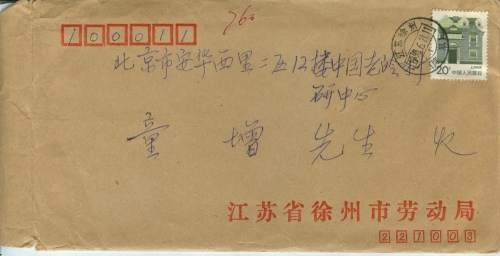 760
100011
北京市安华西里二区12楼中国老龄科
研中心
童增先生 收
江苏徐州
20分
中国人民邮政
江苏省徐州市劳动局
221003